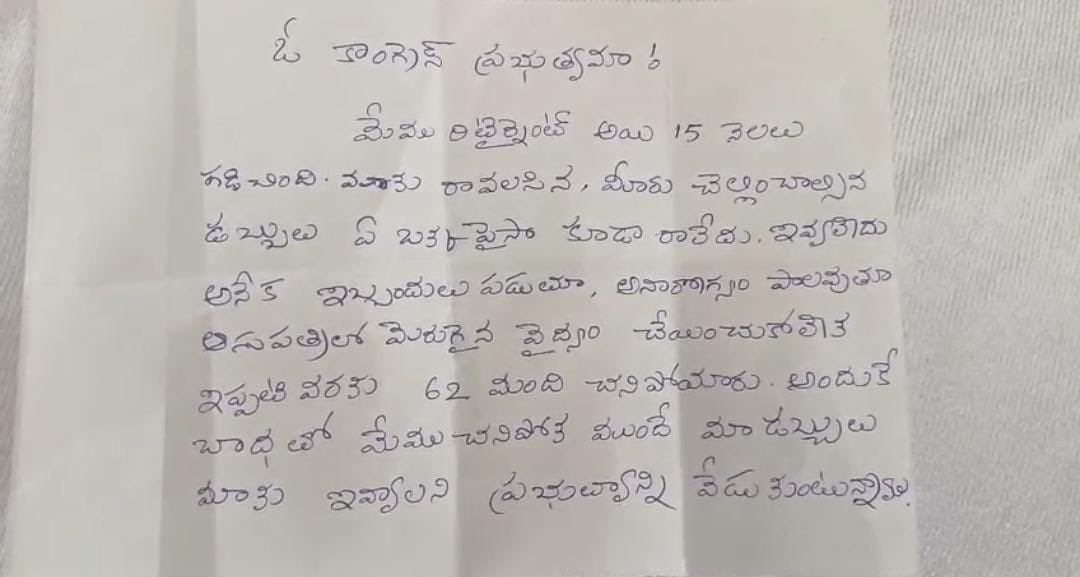 ఓ కాంగ్రెస్ ప్రభుత్వమా !
మేము రిటైర్మెంట్ అయి 15 నెలలు
గడిచింది. మాకు రావలసిన, మీరు చెల్లించాల్సిన
డబ్బులు ఏ ఒక్క పైసా కూడా రాలేదు. ఇవ్వలేదు
అనేక ఇబ్బందులు పడుతూ, అనారోగ్యం పాలవుతూ
ఆసుపత్రిలో మెరుగైన వైద్యం చేయించుకోలేక
ఇప్పటి వరకు 62 మంది చనిపోయారు. అందుకే
బాధ తో మేము చనిపోక ముందే మా డబ్బులు
మాకు ఇవ్వాలని ప్రభుత్వాన్ని వేడుకుంటున్నాము.